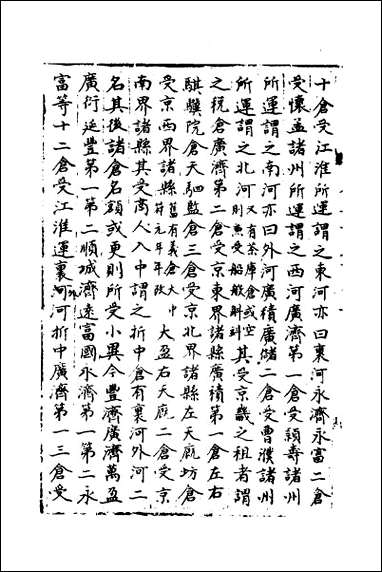 十倉受江淮所運謂之東河亦曰裏河永濟永富二倉
受懷孟諸州所運謂之西河廣濟第一倉受穎壽諸州
所運謂之南河亦曰外河廣積廣儲二倉受曹濮諸州
所運謂之北河又有茶庫倉或空則兼受船般斛㪷其受京畿之租者謂
之稅倉廣濟第二倉受京東界諸縣廣積第一倉左右
騏驥院倉天駟監倉三倉受京北界諸縣左天廐坊倉
受京西界諸縣舊有義倉大中祥符元年年改大盈右天廐二倉受京
南界諸縣其受商人入中謂之折中倉有裏河外河二
名其後諸倉名額或更則所受小異今豐濟廣濟萬盈
廣衍延豐第一第二順城濟遠富國永濟第一第二永
富等十二倉受江淮運裏河河折中廣濟第一三倉受